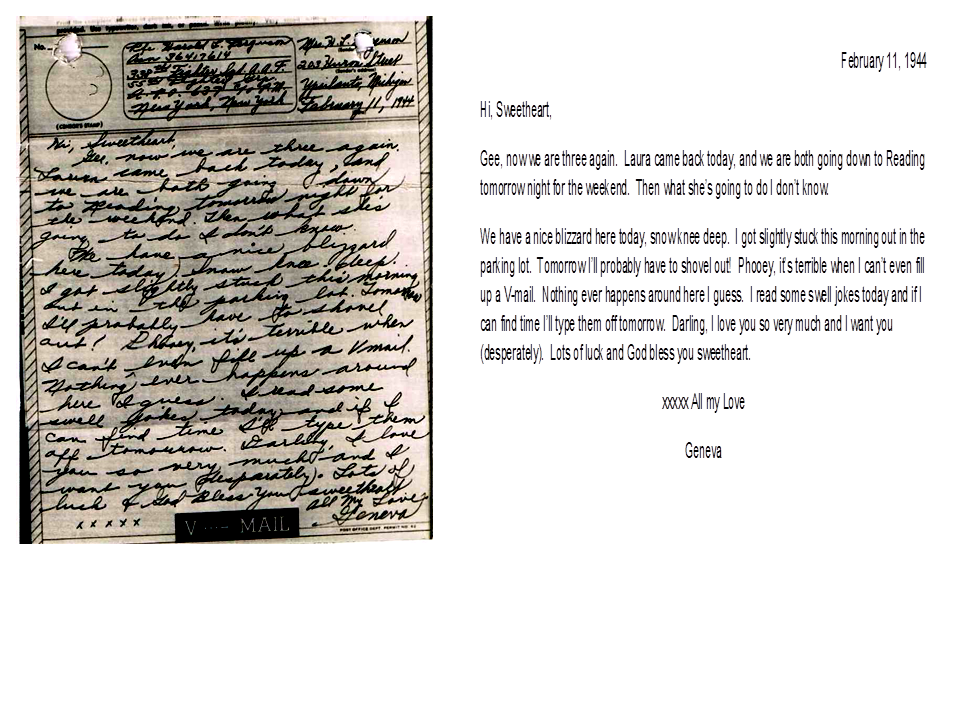 provided. Use typewriter, dark ink, or pencil. Write plainly.
No.
(CENSOR'S STAMP)
Pfc Harold L. Ferguson
Asn 36417614
338th Fighter Sqd. A.A.F.
55th Fighter Grp.
A.P.O. 637
New York, New York
Mrs. H. L.
203 Huron Street
(Sender's address)
Ypsilanti, Michigan
February 11, 1944
Hi, Sweetheart,
Gee, now we are three again.
Laura came back today, and
we are both going down
to Reading tomorrow night for
the weekend. Then what she's
going to do I don't know.
We have a nice blizzard
here today, snow knee deep.
I got slightly stuck this morning
out in the parking lot. Tomorrow
I'll probably have to shovel
out! Phooey, it's terrible when
I can't even fill up a Vmail.
Nothing ever happens around
here I guess. I read some
swell jokes today, and if I
can find time I'll type them
off tomorrow. Darling, I love
you so very much, and I
want you (desparately). Lots of
luck & God Bless You sweetheart
All My Love
xxxxx
Geneva
V ···— MAIL
POST OFFICE DEPT. PERMIT NO.
February 11, 1944
Hi, Sweetheart,
Gee, now we are three again. Laura came back today, and we are both going down to Reading
tomorrow night for the weekend. Then what she's going to do I don't know.
We have a nice blizzard here today, snow knee deep. I got slightly stuck this morning out in the
parking lot. Tomorrow I'll probably have to shovel out! Phooey, it's terrible when I can't even fill
up a V-mail. Nothing ever happens around here I guess. I read some swell jokes today and if I
can find time I'll type them off tomorrow. Darling, I love you so very much and I want you
(desperately). Lots of luck and God bless you sweetheart.
xxxxx All my Love
Geneva